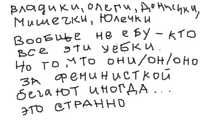 владики, олеги, Денисики,
Мишечки, Юлечки
Вообще не ебу - кто
все эти уебки.
Но то, что они/он/оно
за феминисткой
бегают иногда...
это странно